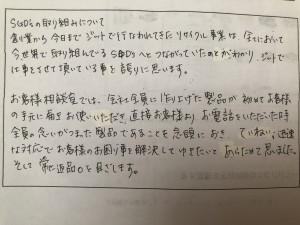 SGD'sの取り組みについて
創業から今日までジートで行なわれてきたリサイクル事業は、全てにおいて
今世界で取り組んでいるSDG'sへとつながっていたのがわかり、ジートで
仕事をさせて頂いている事を誇りに思います。
お客様相談室では、会社全員に作り上げた製品が初めてお客様
の手元に届きお使いいただき直接お客様よりお電話をいただいた時
全員の思いがつまった製品であることを念頭におき ていねい、迅速
な対応でお客様のお困り事を解決してゆきたいと あらためて思いました。
そして常に返品0を目ざします。